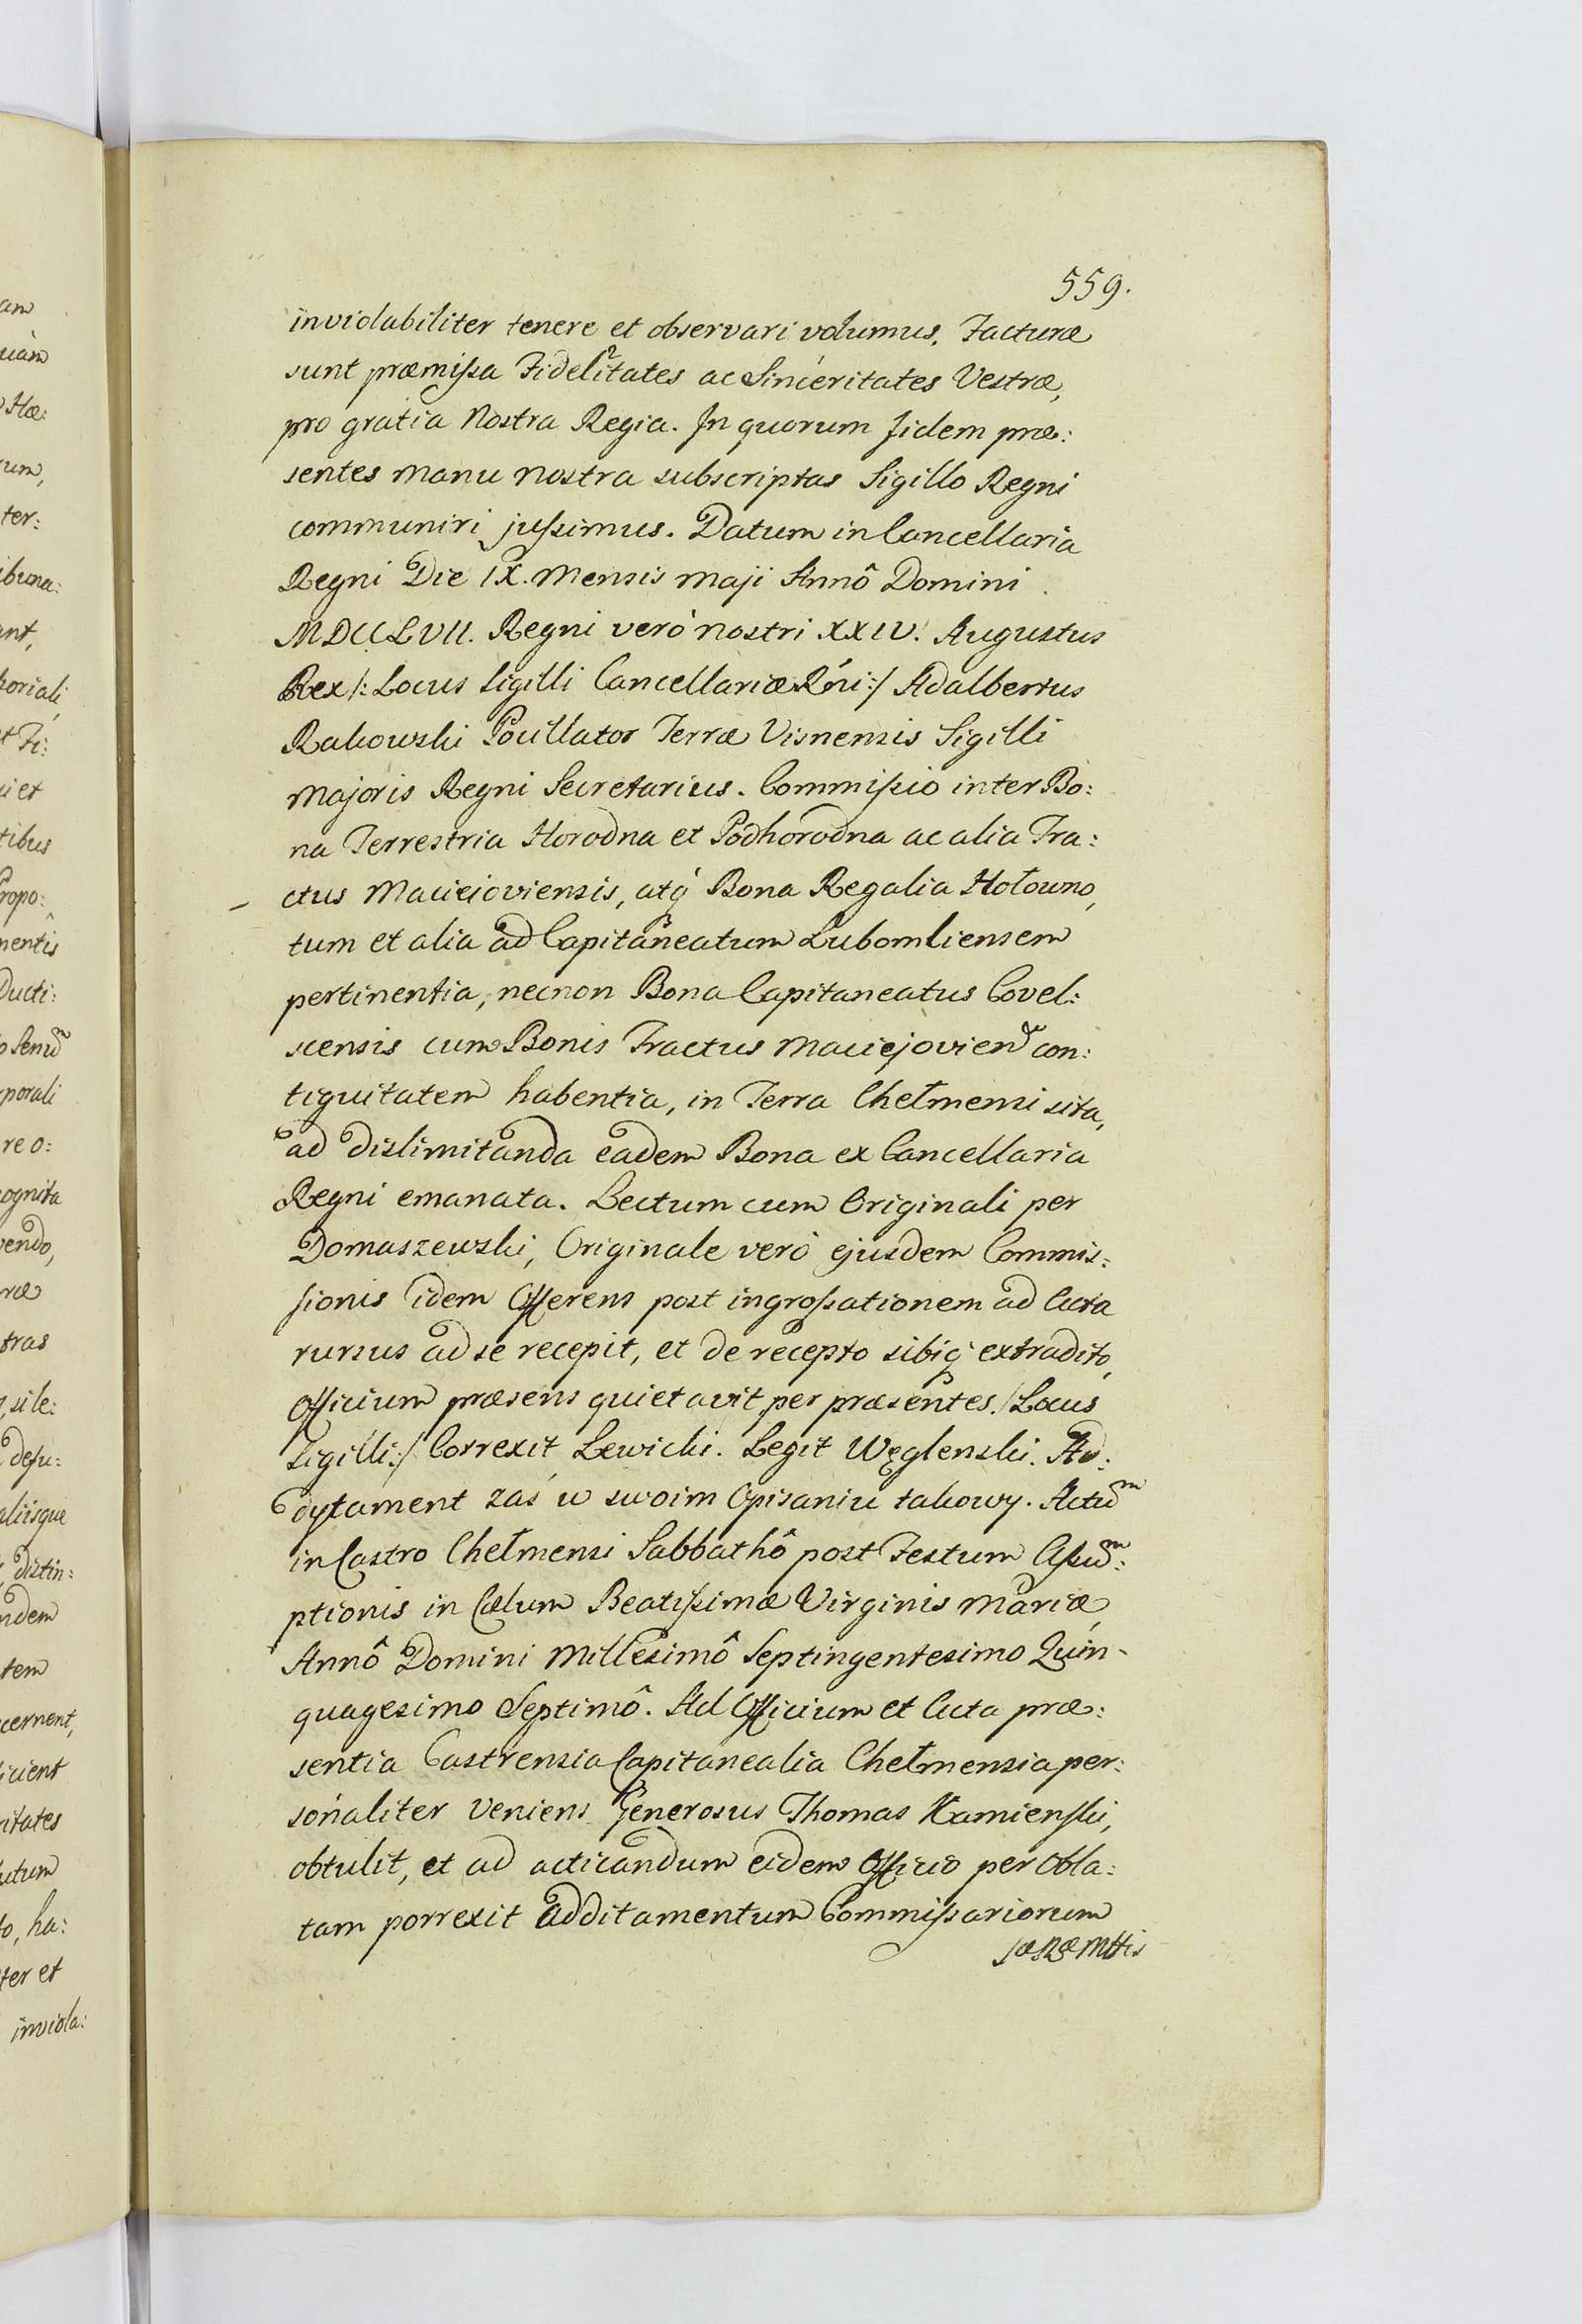 559.
inviolabiliter tenere et observari volumus. Facturæ
sunt præmissa Fidelitates ac Sinceritates Vestræ,
pro gratia Nostra Regia. In quorum fidem præ:
sentes manu nostra subscriptas Sigillo Regni
communiri jussimus. Datum in Cancellaria
Regni Die IX. Mensis Maji Annô Domini
MDCCLVII. Regni verò nostri XXIV. Augustus
Rex /: Locus Sigilli Cancellariæ Rńi :/ Adalbertus
Rakowski Pocillator Terræ Visnensis Sigilli
Majoris Regni Secretarius. Commissio inter Bo:
na Terrestria Horodna et Podhorodna ac alia Tra:
ctus Macieioviensis, atq́ Bona Regalia Hołowno,
tum et alia ad Capitaneatum Lubomliensem
pertinentia, necnon Bona Capitaneatus Covel:
scensis cum Bonis Tractus Maciejovień con:
tiguitatem habentia, in Terra Chełmensi sita,
ad dislimitanda eadem Bona ex Cancellaria
Regni emanata. Lectum cum Originali per
Domaszewski, Originale verò ejusdem Commis:
sionis idem Offerens post ingrossationem ad Acta
rursus ad se recepit, et de recepto sibiq́ extradito,
Officium præsens quietavit per præsentes. /: Locus
Sigilli :/ Correxit Lewicki. Legit Węglenski. Ad:
dytament zaś w swoim Opisaniu takowy. Actu͠m
in Castro Chełmensi Sabbathô post Festum Assu͠m:
ptionis in Cælum Beatissimæ Virginis Mariæ,
Annô Domini Millesimô Septingentesimo Quin-
quagesimo Septimô. Ad Officium et Acta præ:
sentia Castrensia Capitanealia Chełmensia per:
sonaliter veniens Generosus Thomas Kamienski,
obtulit, et ad acticandum eidem Officio per Obla:
tam porrexit additamentum Commissariorum